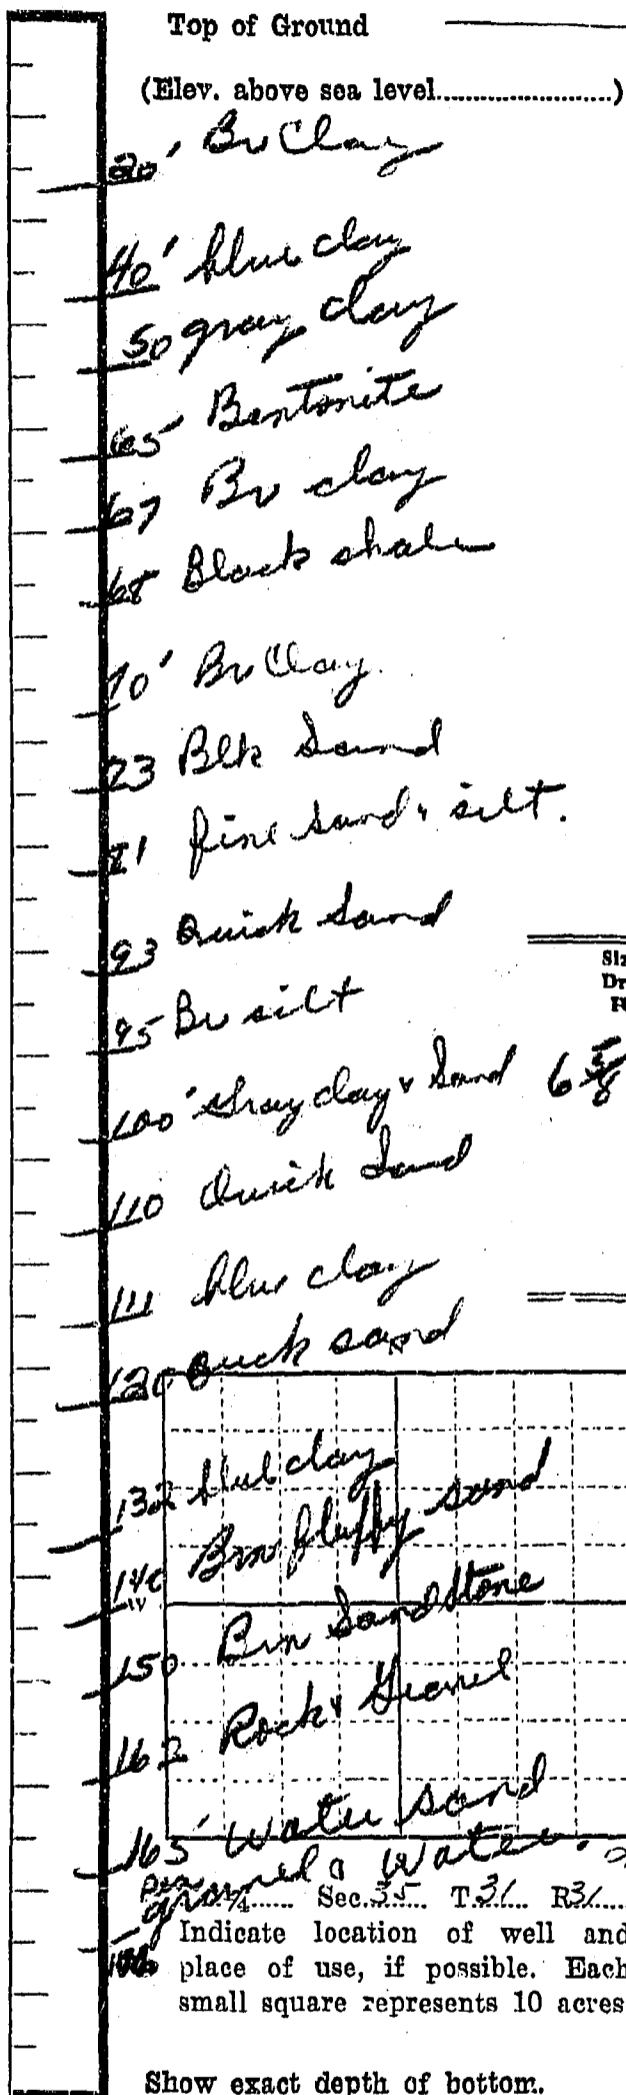 Top of Ground
(Elev. above sea level....................)
20' Br Clay
40' blue clay
50 gray clay
65 Bentonite
67 Br clay
68 Black shale
70' Br Clay
73 Blk Sand
81 fine sand & silt.
93 Quick Sand
95 Br silt
100' Gray clay & Sand
6 5/8
110 Quick Sand
111 blue clay
120 Quick sand
132 blue clay
140 Brn fluffy sand
150 Brn Sandstone
162 Rock & Gravel
165' Water sand
Pea gravel & Water.
¼ Sec. 35 T. 31 R 31
Indicate location of well and
place of use, if possible. Each
small square represents 10 acres
Show exact depth of bottom.